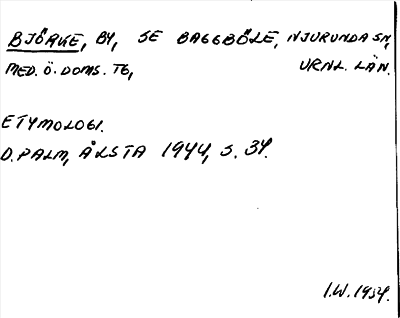 BJÖRKE, BY, SE BAGGBÖLE, NJURUNDA SN,
MED. Ö. DOMS. TG, VRNL. LÄN.
ETYMOLOGI.
D. PALM, ÅLSTA 1944, S. 34.
I.W. 1954.